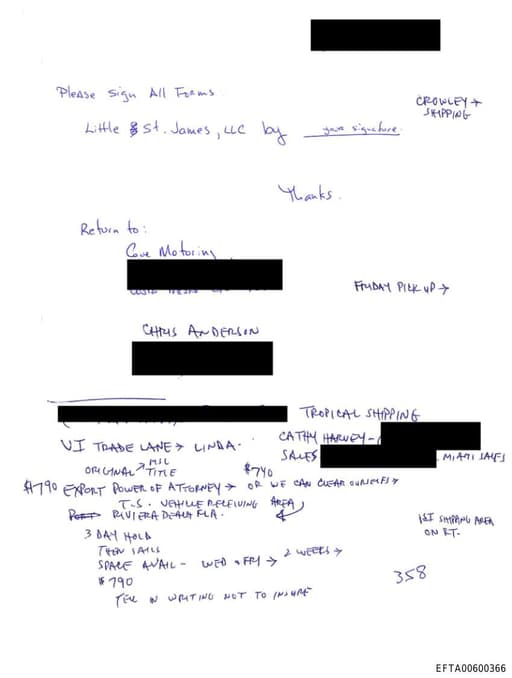 Please Sign All Forms.
CROWLEY →
SHIPPING
Little St. James, LLC by your signature.
Thanks.
Return to:
Cove Motoring
FRIDAY PICK UP →
CHRIS ANDERSON
TROPICAL SHIPPING
VI TRADE LANE → LINDA.
CATHY HARVEY -
SALES
MIAMI SALES
ORIGINAL TITLE
$740
$790 EXPORT POWER OF ATTORNEY → OR WE CAN CLEAR OURSELFS →
T.S. VEHICLE RECEIVING AREA
RIVIERA BEACH FLA.
1ST SHIPPING AREA
ON RT.
3 DAY HOLD
THEN SAILS
SPACE AVAIL - WED & FRI → 2 WEEKS →
$790
358
TELL IN WRITING NOT TO INSURE
EFTA00600366